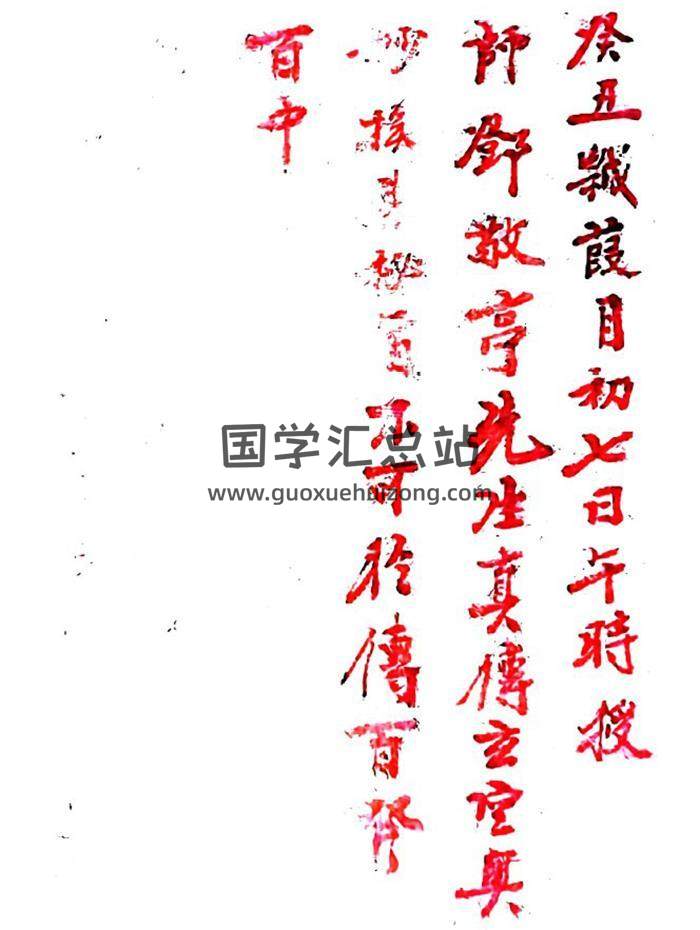 癸丑歲葭月初七日午時授
師鄧敬亭先生真傳玄空奧
妙挨星秘旨不可於傳百發
百中
国学汇总站
www.guoxuehuizong.com